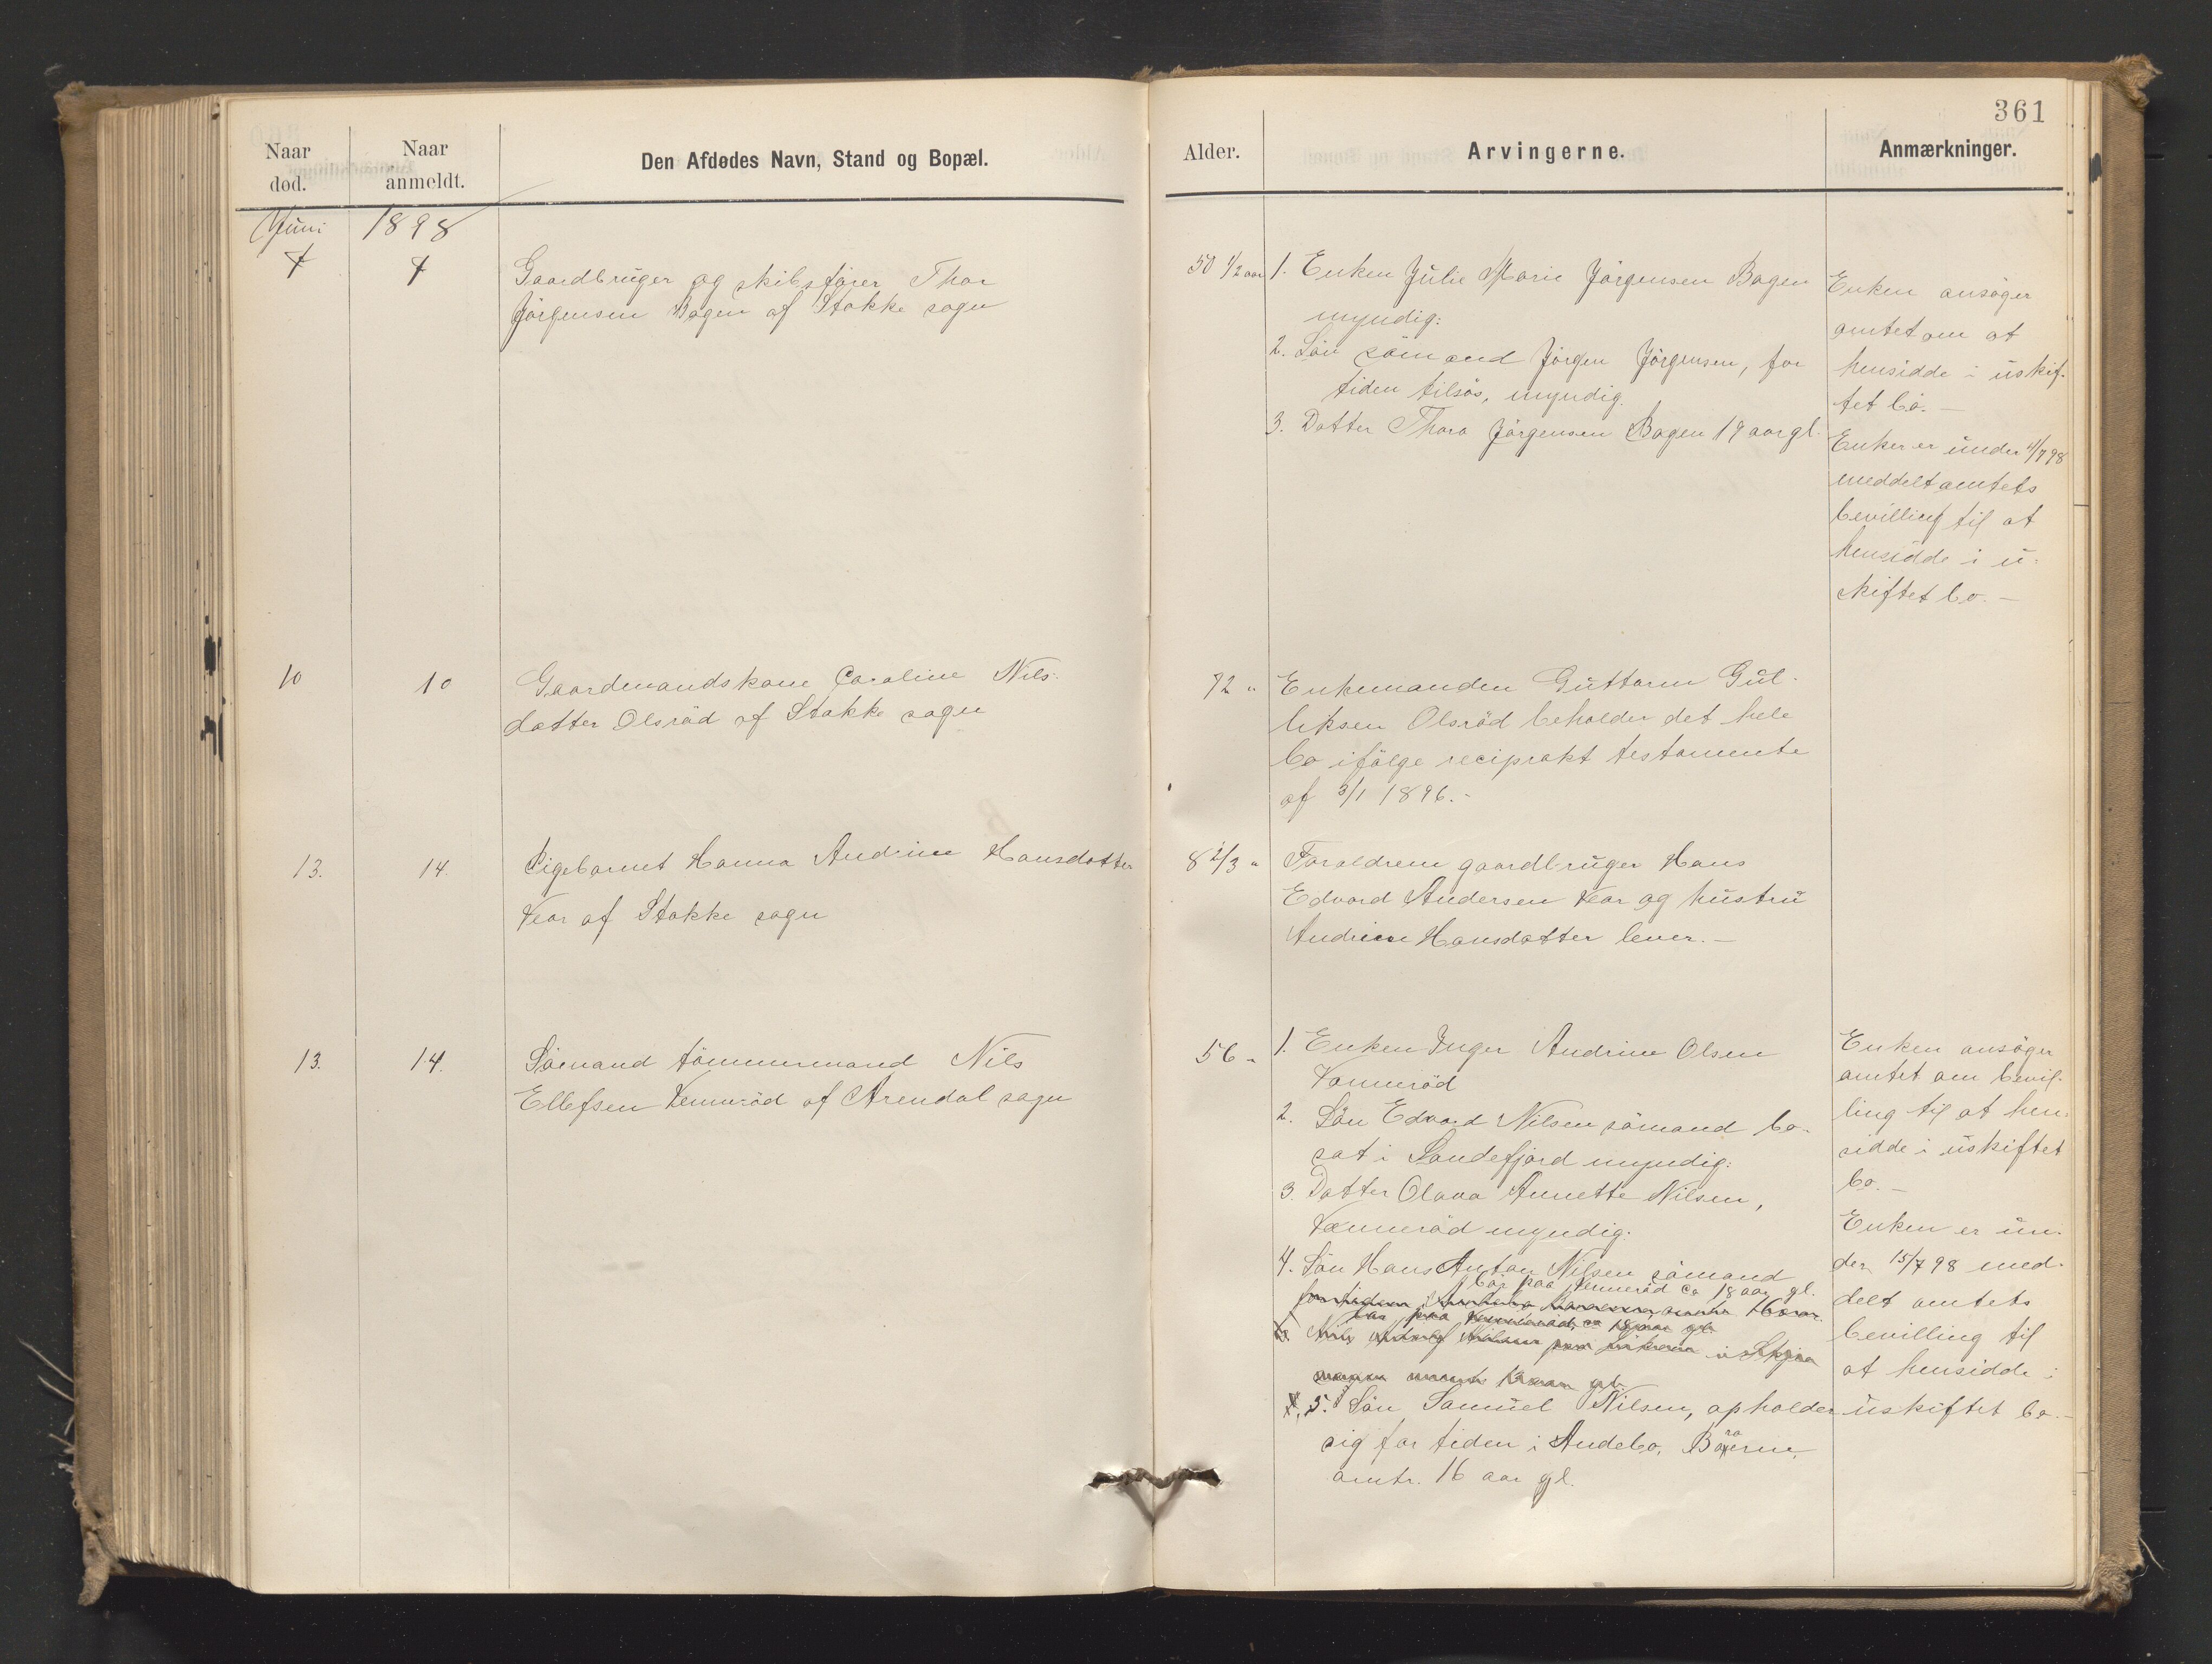 361
Naar død.
Naar anmeldt.
Den Afdødes Navn, Stand og Bopæl.
Alder.
Arvingerne.
Anmærkninger.
Juni 1898
7
7
Gaardbruger og skibsfører Thor
Jörgensen Bogen af Stokke sogn
50 1/2 aar
1. Enken Julie Marie Jörgensen Bogen
myndig:
2. Sön sömand Jörgen Jörgensen, for
tiden tilsös, myndig.
3. Datter Thora Jörgensen Bogen 19 aar gl.
Enken ansöger
amtet om at
hensidde i uskif-
tet bo. –
Enken er under 4/7 98
meddelt amtets
bevilling til at
hensidde i u-
skiftet bo. –
10
10
Gaardmandskone Caroline Nils-
datter Olsröd af Stokke sogn
72 "
Enkemanden Guttorm Gul-
liksen Olsröd beholder det hele
bo ifölge reciprokt testamente
af 3/1 1896. -
13.
14.
Pigebarnet Hanna Andrine Hansdatter
Vear af Stokke sogn
8 2/3 "
Forældrene gaardbruger Hans
Edvard Andersen Vear og hustru
Andrine Hansdatter lever. –
13.
14.
Sömand tömmermand Nils
Ellefsen Venneröd af Arendal sogn
56 "
1. Enken Inger Andrine Olsen
Venneröd
2. Sön Edvard Nilsen sömand bo-
sat i Sandefjord myndig:
3. Datter Olava Annette Nilsen,
Venneröd myndig.
4. Sön Hans Anton Nilsen sömand
bor paa Venneröd ca 18 aar gl.
for tiden 16 aar
bor paa Venneröd, ca 18 aar gl.
5. Sön Samuel Nilsen, opholder
sig for tiden i Andebo,
omtr. 16 aar gl.
Enken ansöger
amtet om bevil-
ling til at hen-
sidde i uskiftet
bo. –
Enken er un-
der 15/7 98 med-
delt amtets
bevilling til
at hensidde i
uskiftet bo. –